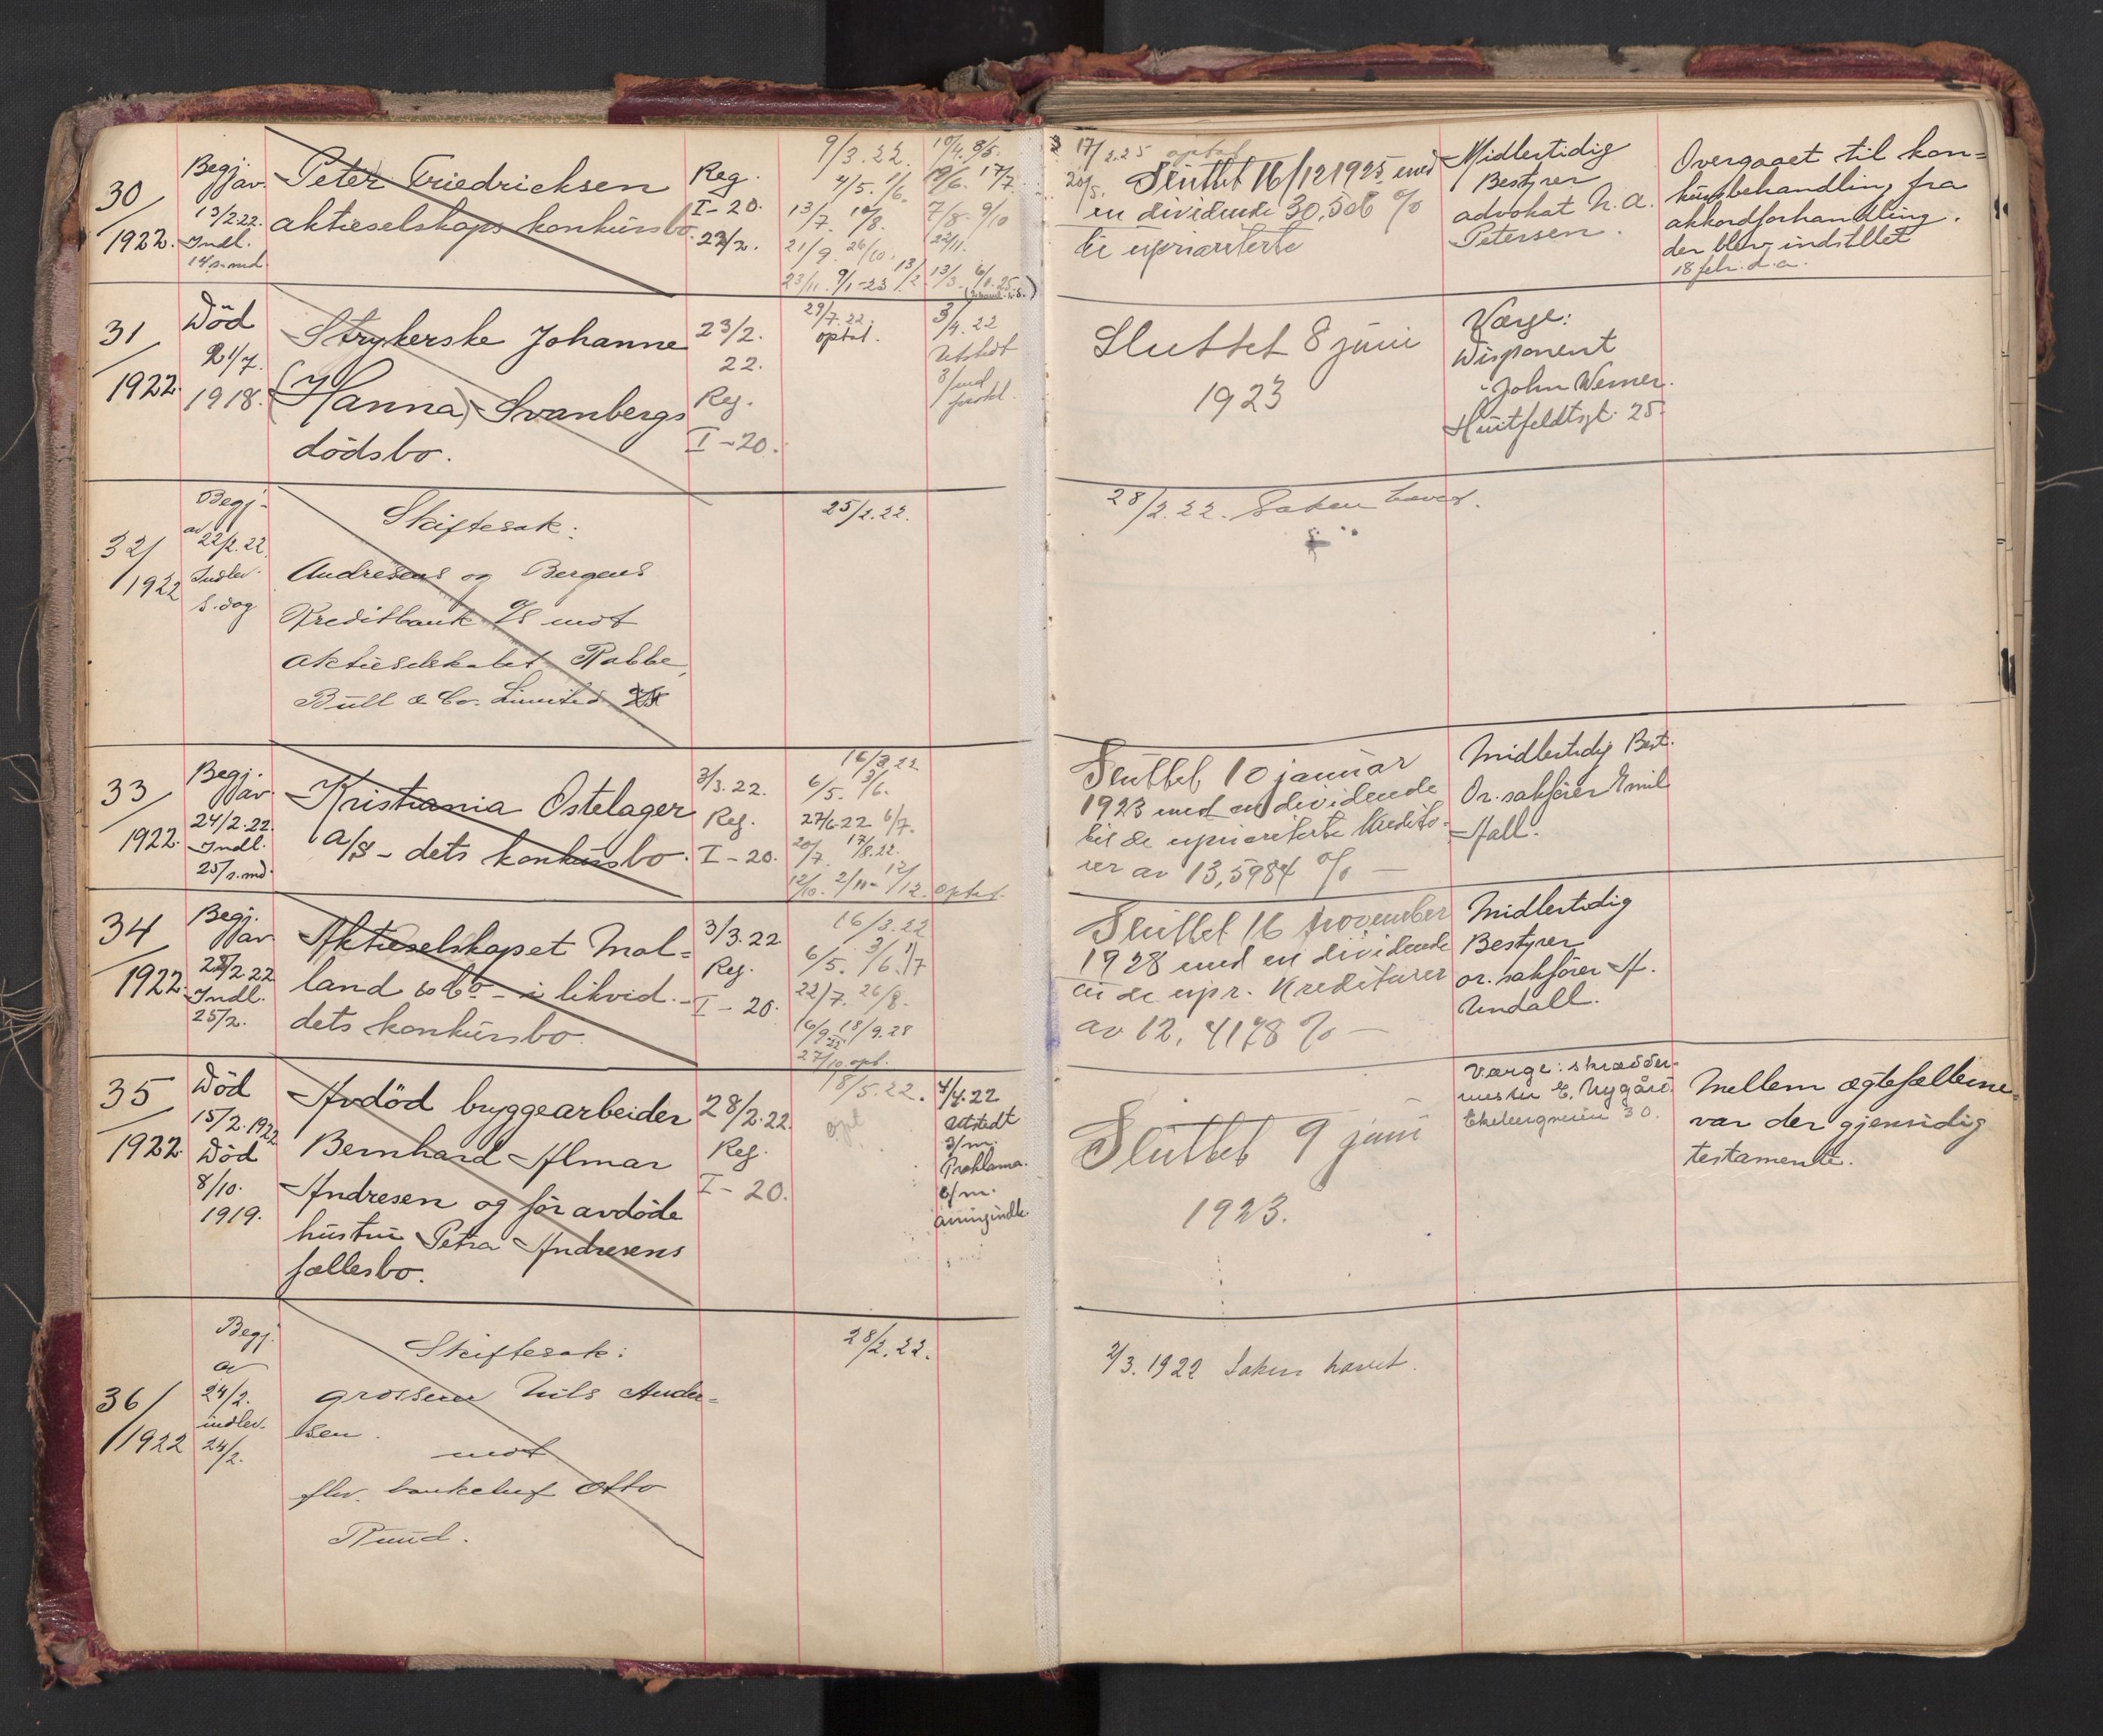 30/1922.
Begj. av.
13/2 22.
Indl.
14 s. md.
Peter Friedricksen
aktieselskaps konkursbo.
Reg.
I-20.
22/2.
9/3.22.
4/5. 1/6.
13/7. 10/8.
21/9. 26/10.
23/11. 9/1-23
17/2.25 optat
Sluttet 16/12 1925 med
en dividende 30,506 %
til uprioriterte
Midlertidig
Bestyrer
advokat N. A.
Petersen.
Overgaaet til kon=
kursbehandling fra
akkordforhandling.
der blev indstillet
18 feb. d.a.
31/1922.
Död
21/7.
1918.
Strykerske Johanne
(Hanna) Svanbergs
dödsbo.
23/2.
22.
Reg.
I-20.
29/7.22.
optat.
3/4.22
Utstedt
3/md
prokl.
Sluttet 8 juni
1923
Værge:
Disponent
John Werner.
Huitfeldtsgt. 25.
32/1922
Begj.
av 22/2.22.
Indlev.
s. dag
Skiftesak:
Andresens og Bergens
Kreditbank A/S mot
aktieselskabet Rabbe,
Bull & Co. Limited
25/2.22.
28/2.22. Saken hævet.
33/1922.
Begj. av.
24/2.22.
Indl.
25/s.md.
Kristiania Ostelager
A/S - dets konkursbo.
3/3.22.
Reg.
I-20.
16/3.22
6/5. 3/6.
27/6.22 6/7.
20/7. 17/8.22.
12/10. 2/11- 12/12. optat.
Sluttet 10 januar
1923 med en dividende
til de uprioriterte kredito-
rer av 13,5984 % —
Midlertidig Best.
Or. sakfører Emil
Hall.
34/1922.
Begj. av
22/2 22
Indl.
25/2.
Aktieselskapet Mol=
land & Co - i likvid. -
dets konkursbo.
3/3.22
Reg.
I-20.
16/3.22
6/5. 3/6. 1/7
22/7. 26/8.
16/9.22 18/9.28
27/10 opt.
Sluttet 16 november
1928 med en dividende
til de upr. Kreditorer
av 12,4178 % —
Midlertidig
Bestyrer
or. sakfører H.
Undall.
35/1922.
Död
15/2.1922
Död
8/10.
1919.
Avdöd byggearbeider
Bernhard Hlmar
Andresen og för avdöde
hustru Petra Andresens
fællesbo.
28/2.22.
Reg.
I-20.
18/5.22.
opt
4/4.22
utstedt
3/m.
Proklama.
6/m.
Sluttet 9 juni
1923.
Værge: skrædder-
mester E. Nygård
Ekebergveien 30.
Mellem ægtefællerne
var der gjensidig
testamente.
36/1922
Begj.
av
24/2.
indlev.
24/2.
Skiftesak:
grosserer Nils Ander=
sen.
mot
fhv. bankchef Otto
Ruud.
28/2.22.
2/3.1922 Saken hævet.